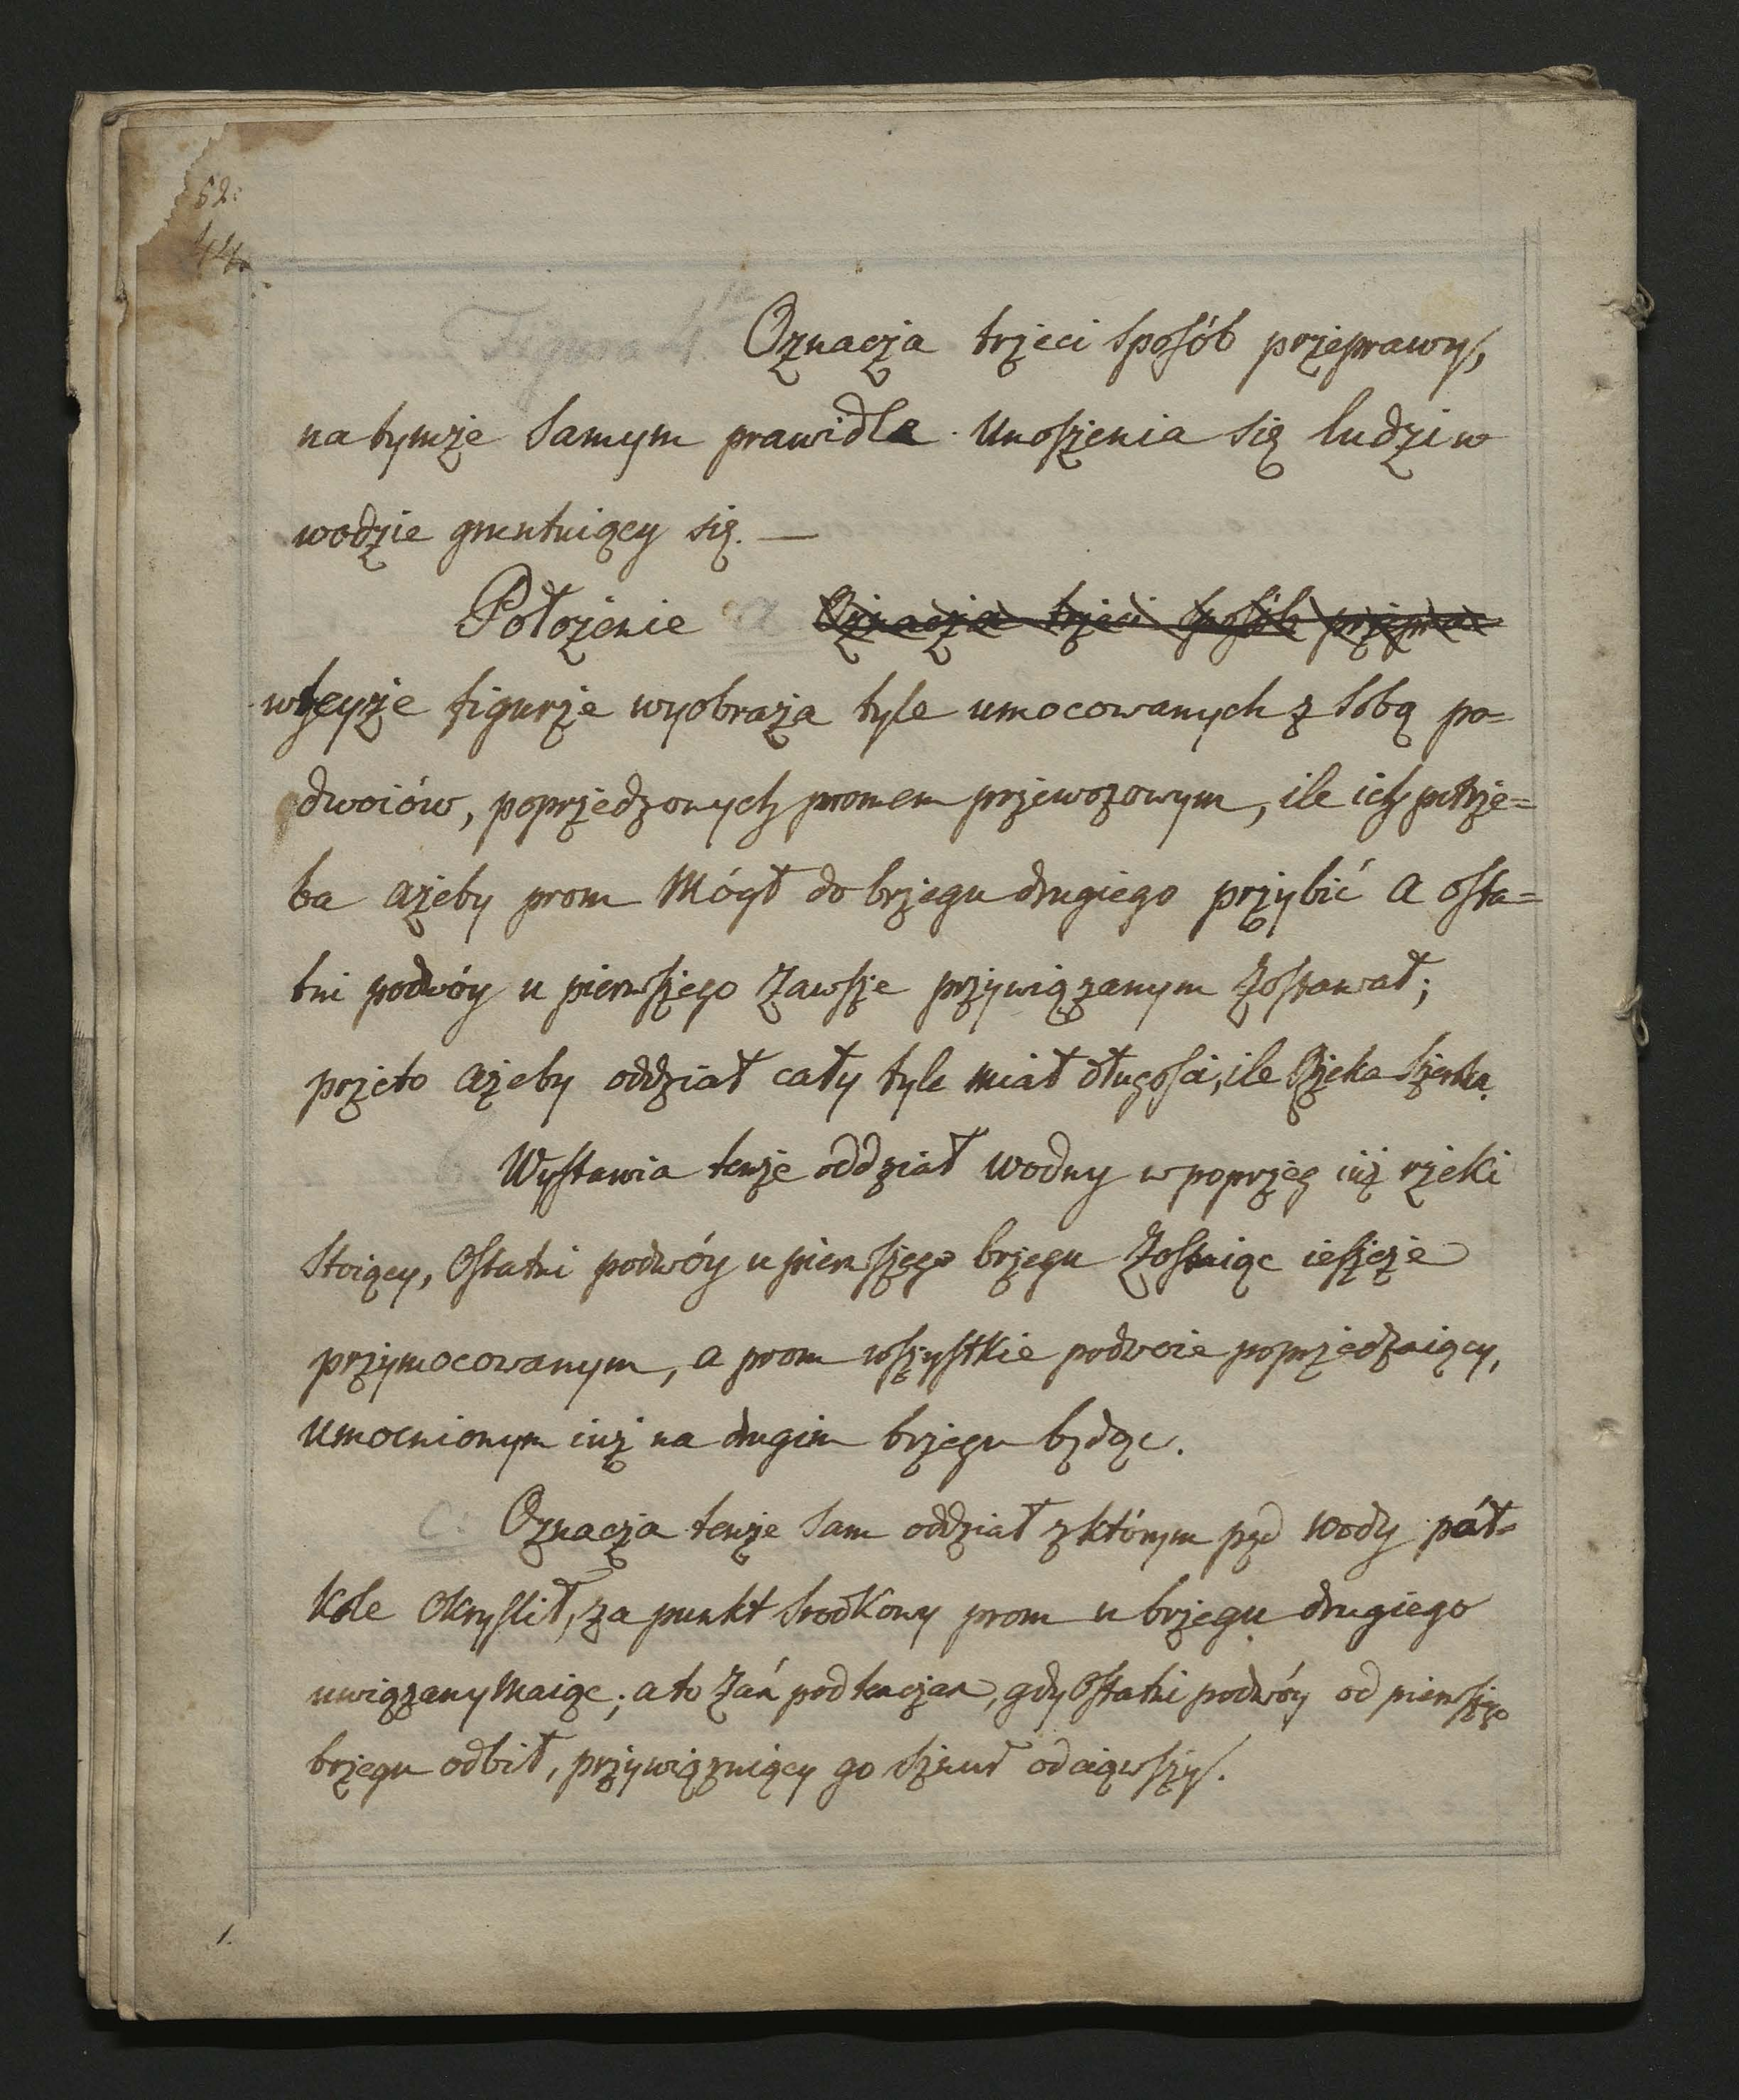 52:
44.
Figura 4ta Oznacza trzeci sposób przeprawy,
na tymże samym prawidle unoszenia się ludzi w
wodzie gruntuiący się. —
Położenie a Oznacza trzeci sposób przepra=
wteyże figurze wyobraża tyle umocowanych z sobą po=
dwoiów, poprzedzonych promem przewozowym, ile ich potrze=
ba ażeby prom mógł do brzegu drugiego przybić a osta=
tni podwóy u pierwszego zawsze przywiązanym zostawał;
przeto ażeby oddział cały tyle miał długości, ile Rzeka szeroka.
b. Wystawia tenże oddział wodny w poprzeg iuż rzeki
stoiący, Ostatni podwóy u pierwszego brzegu zostaiąc ieszcze
przymocowanym, a prom wszystkie podwoie poprzedzaiący,
umocnionym iuż na drugim brzegu będąc.
c: Oznacza tenże sam oddział z którym pęd wody pół=
kole okryslił, za punkt srodkowy prom u brzegu drugiego
uwiązany maiąc; a to zań podtenczas, gdy Ostatni podwóy od pierwszego
brzegu odbił, przywięzuiący go sznur odciąwszy.
1.